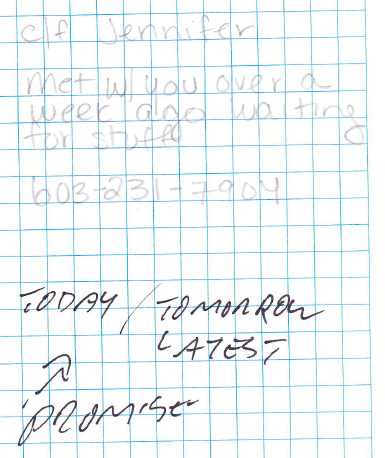 c/f Jennifer
Met w/ you over a
week ago waiting
for stuff
603-231-7904
TODAY / TOMORROW
LATEST
PROMISE